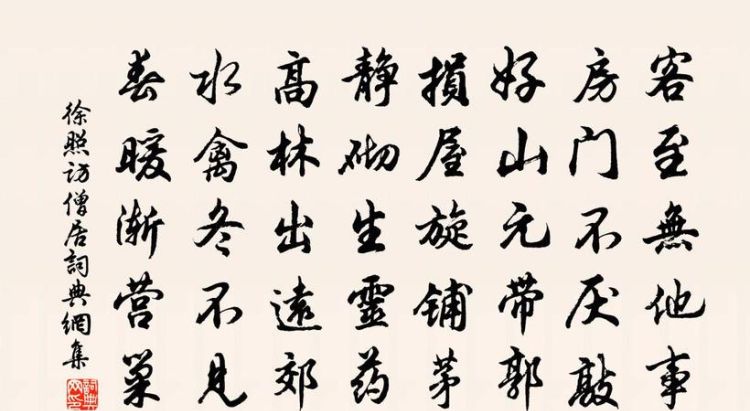 客至無他事
房门不厌敲
好山元带郭
損屋旋铺茅
静砌生靈药
高林出遠郊
水禽冬不見
春暖漸营巢
徐照访僧居詞典網集